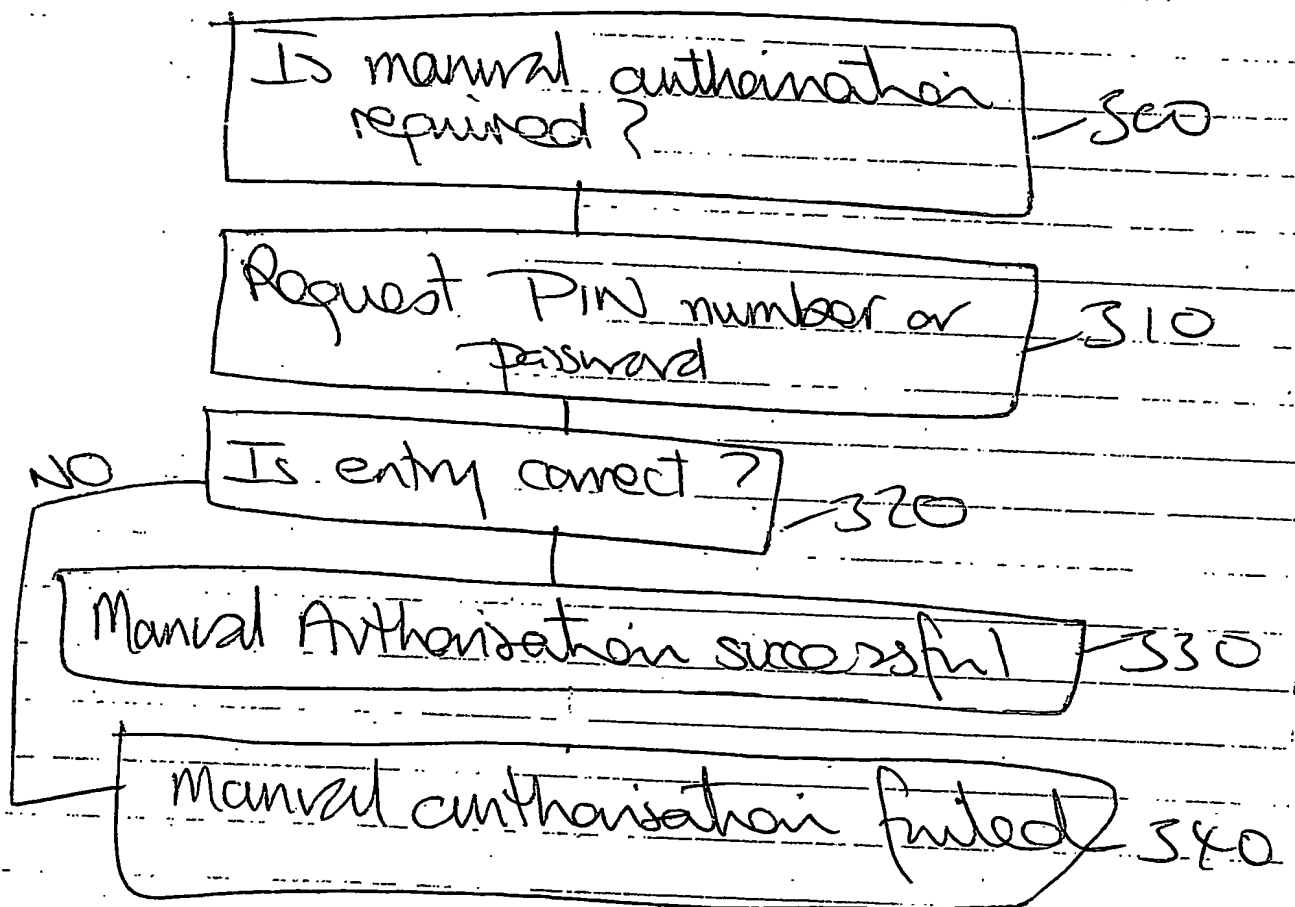 Is manual authorisation
required?
300
Request PIN number or
password
310
NO
Is entry correct?
320
Manual Authorisation successful
330
Manual authorisation failed
340